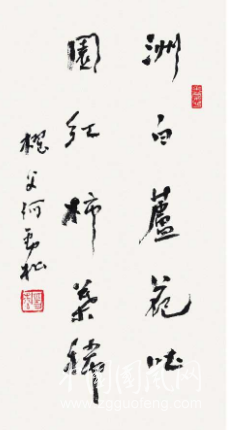 洲白蘆花吐
園红柿葉稀
何勁松
中国国风网
www.zgguofeng.com